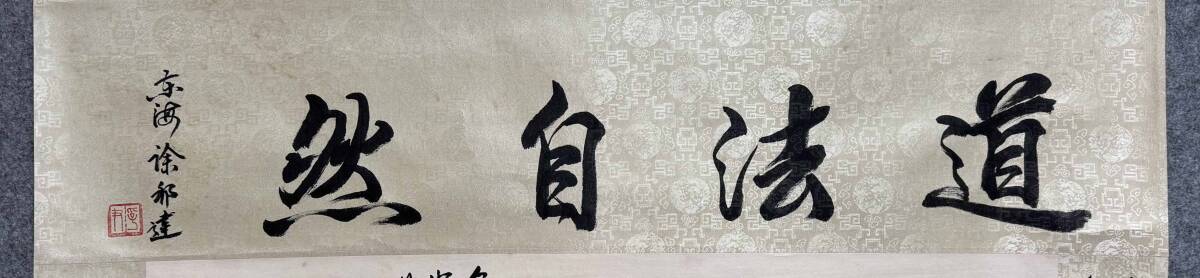 道法自然
东海徐邦达